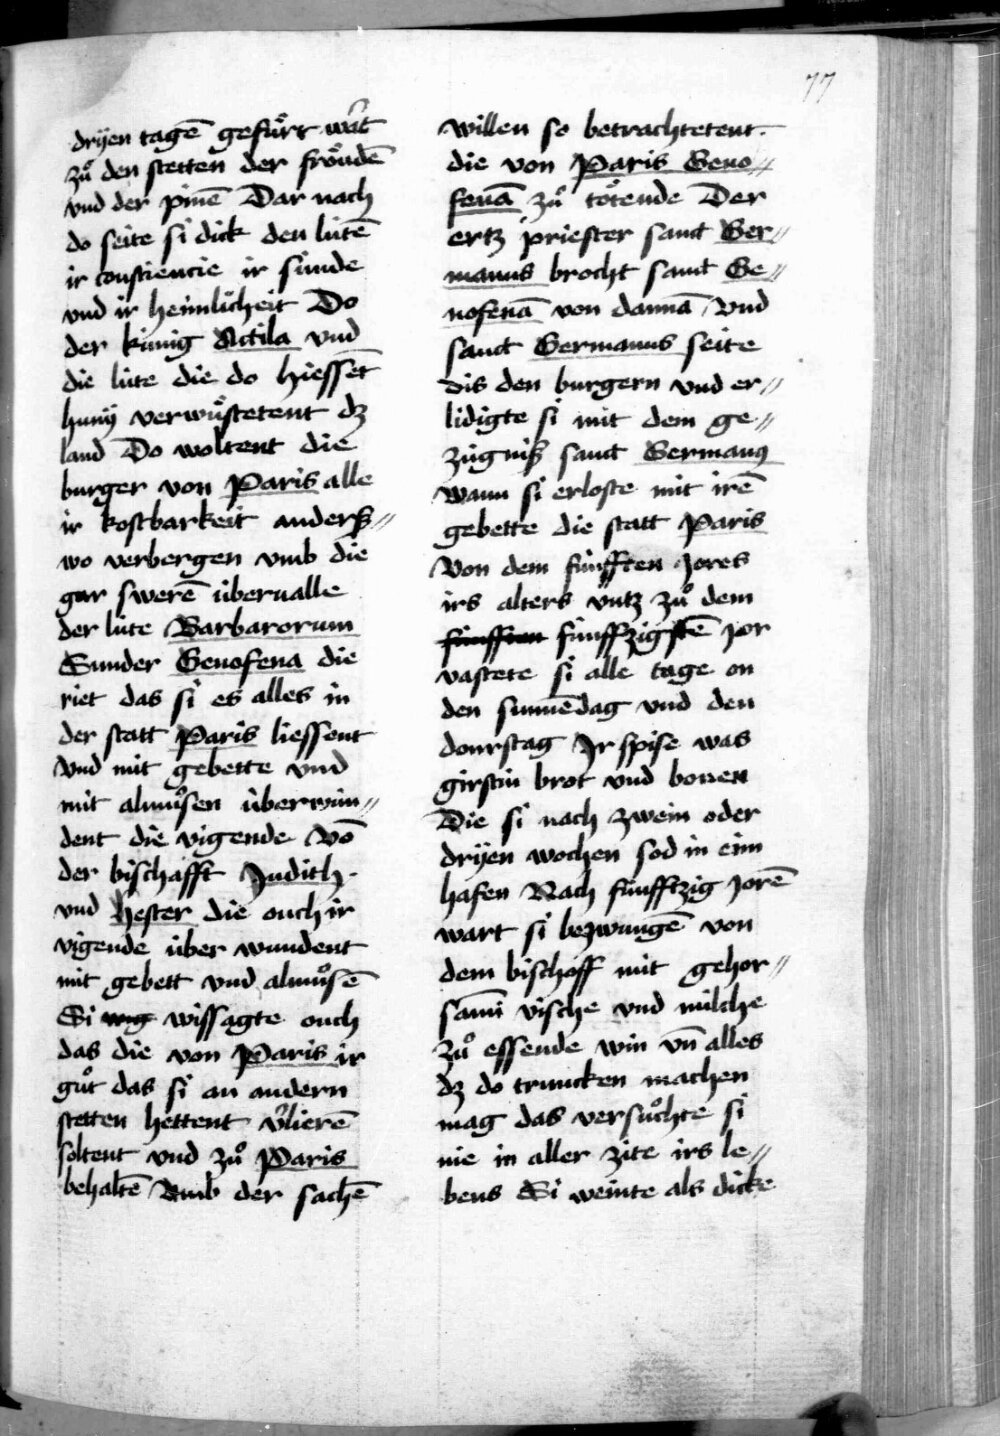 77
drÿen tagē gefuͤrt wart
zuͦ den stetten der froͤudē
vnd der pinē Dar nach
do seite si dick den lutē
ir consciencie ir sunde
vnd ir heimlicheit Do
der kúnig Actila vnd
die lúte die do hiessēt
hunÿ verwuͤstetent dz
land Do woltent die
burger von Paris alle
ir kostbarkeit anderß//
wo verbergen vmb die
gar swerē úberualle
der lúte Barbarorum
Sunder Genofena die
riet das si es alles in
der statt Paris liessent
Vnd mit gebette vnd
mit almuͦsen úberwin//
dent die vigende Vō
der bischafft Judith.
vnd hester die ouch ir
vigende úber wundent
mit gebett vnd almuͦsē
Si wissagte ouch
das die von Paris ir
guͦt das si an andern
stetten hettent v̾lierē
soltent vnd zuͦ Paris
behaltē Vmb der sachē
willen so betrachtetent.
die von Paris Geno//
fenā zuͦ toͤtende Der
ertz priester sanct Ger//
manus brocht sanct Ge//
nofenā von dannā Vnd
sanct Germanus seite
dis den burgern vnd er//
lidigte si mit dem ge//
zúgniß sanct Germanꝰ
Wann si erloste mit irē
gebette die statt Paris
Von dem fúnfften Jores
irs alters vntz zuͦ dem
fúnfften fúnffzigstē Jor
vastete si alle tage on
den sunnēdag vnd den
donrstag Ir spise was
girstin brot vnd bonen
Die si nach zwein oder
drÿen wochen sod in eim
hafen Nach fúnfftzig Jorē
wart si bezwungē von
dem bischoff mit gehor//
sami vische vnd milche
zuͦ essende win vn̄ alles
dz do truncken machen
mag das versuͦchte si
nie in aller zite irs le//
bens Si weinte als dicke